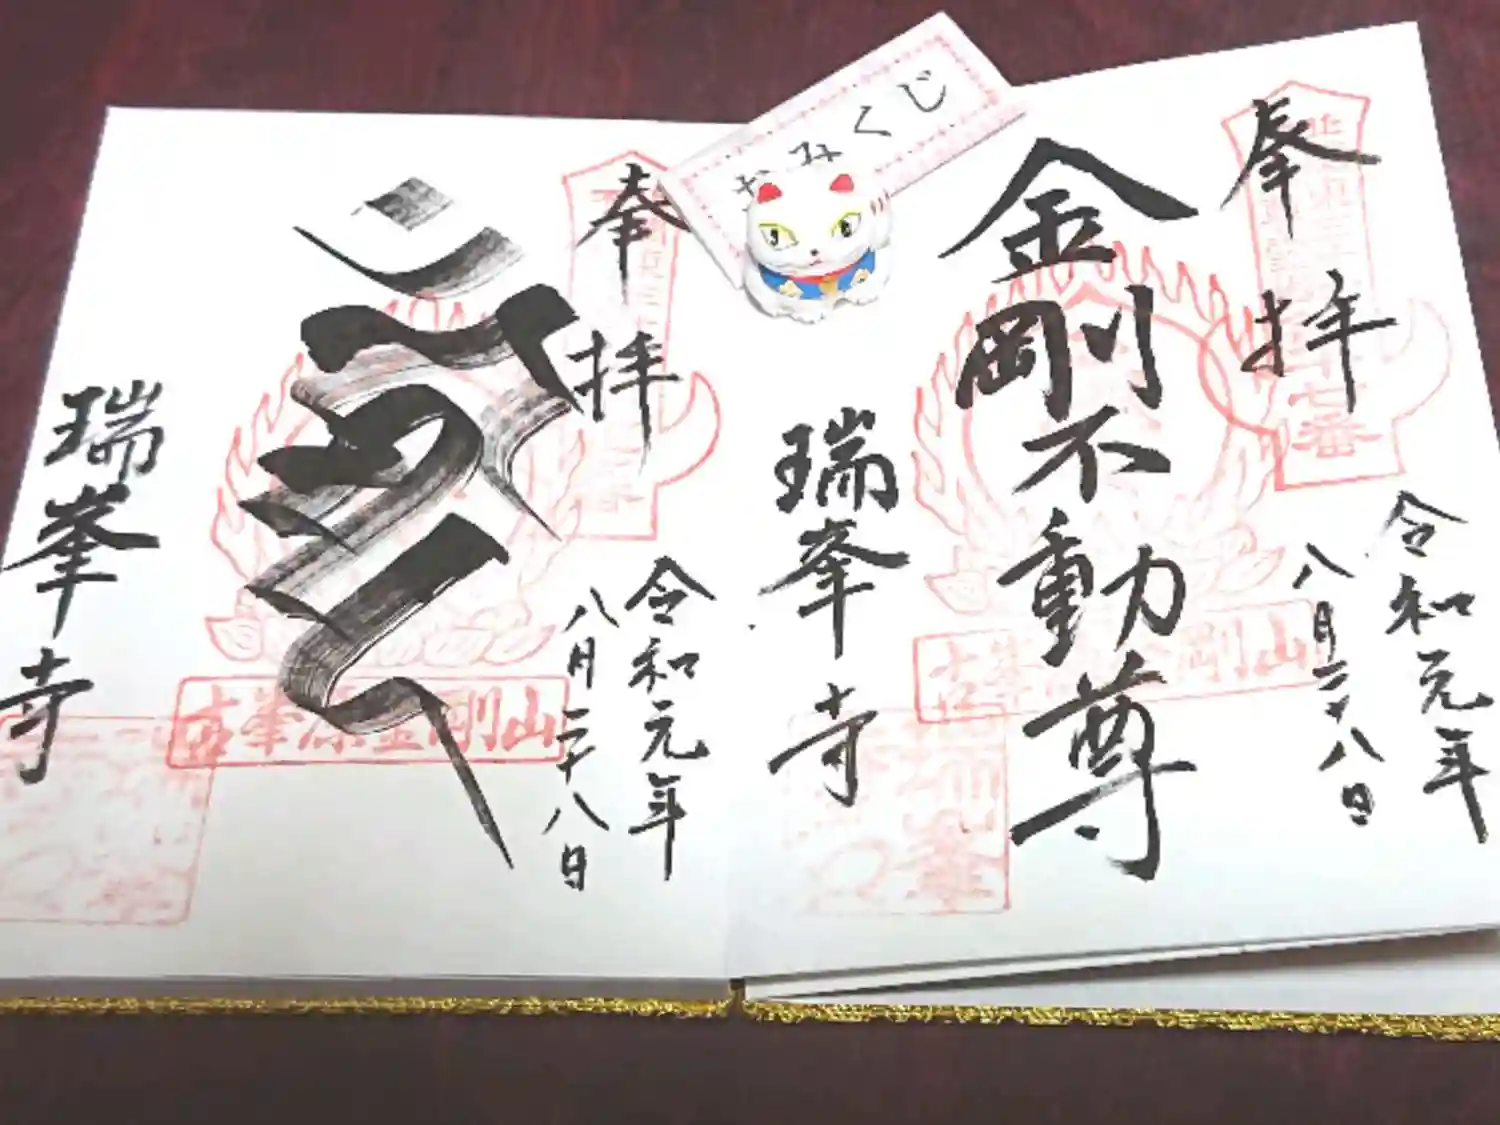 おみくじ
奉拝
金剛不動尊
瑞峯寺
令和元年
八月二十八日
七番
奉拝
瑞峯寺
令和元年
八月二十八日
古峯原金剛山